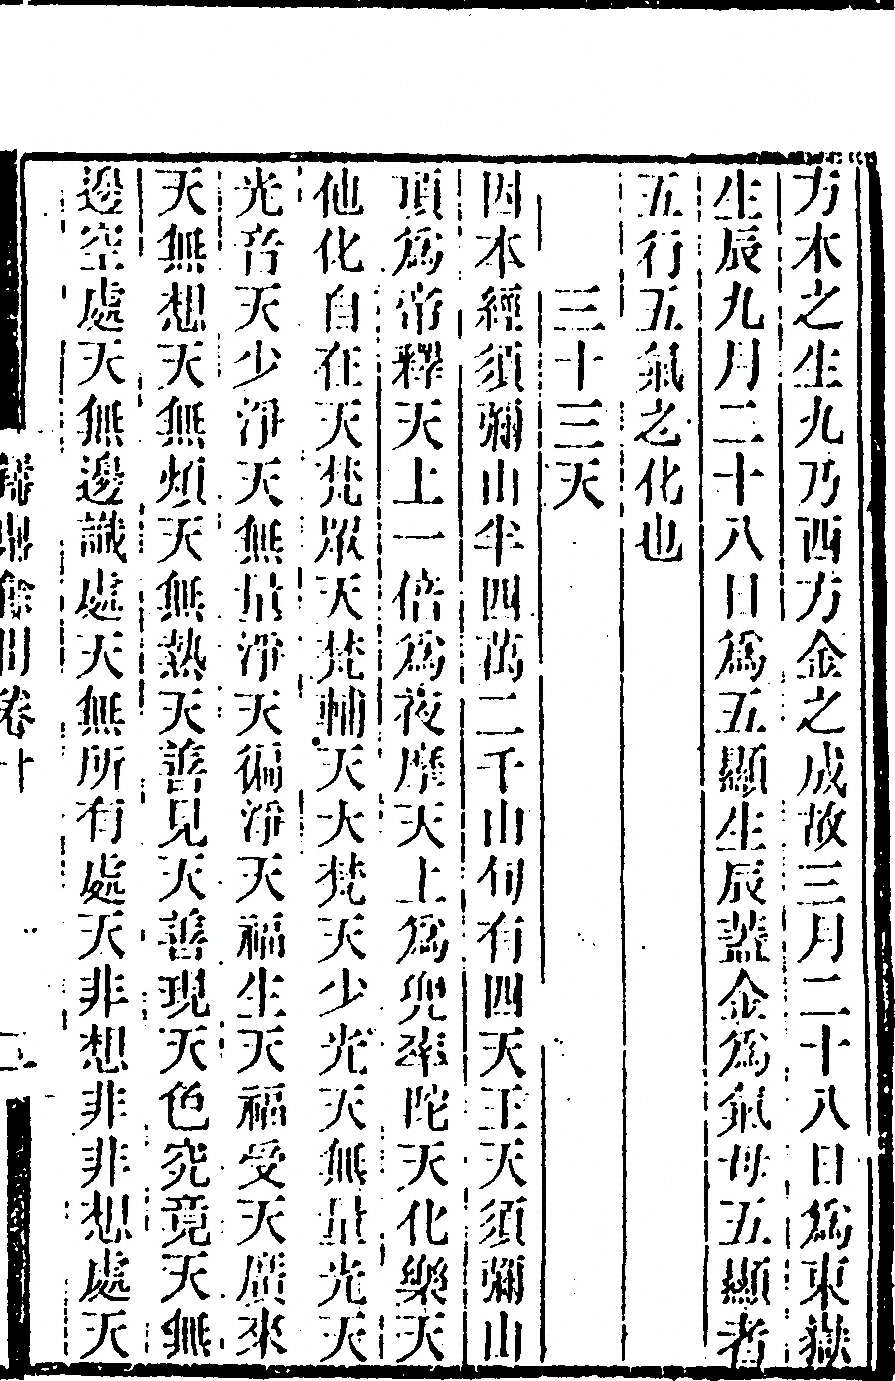 方木之生九乃西方金之成故三月二十八日爲東嶽
生辰九月二十八日爲五顯生辰葢金爲氣母五顯者
五行五氣之化也
三十三天
因本經須彌山半四萬二千山旬有四天王天須彌山
頂爲帝釋天上一倍爲夜摩天上爲兜率陀天化樂天
他化自在天梵眾天梵輔天大梵天少光天無量光天
光音天少淨天無量淨天徧淨天福生天福受天廣來
天無想天無煩天無熱天善見天善現天色究竟天無
邊空處天無邊識處天無所有處天非想非非想處天
卷十